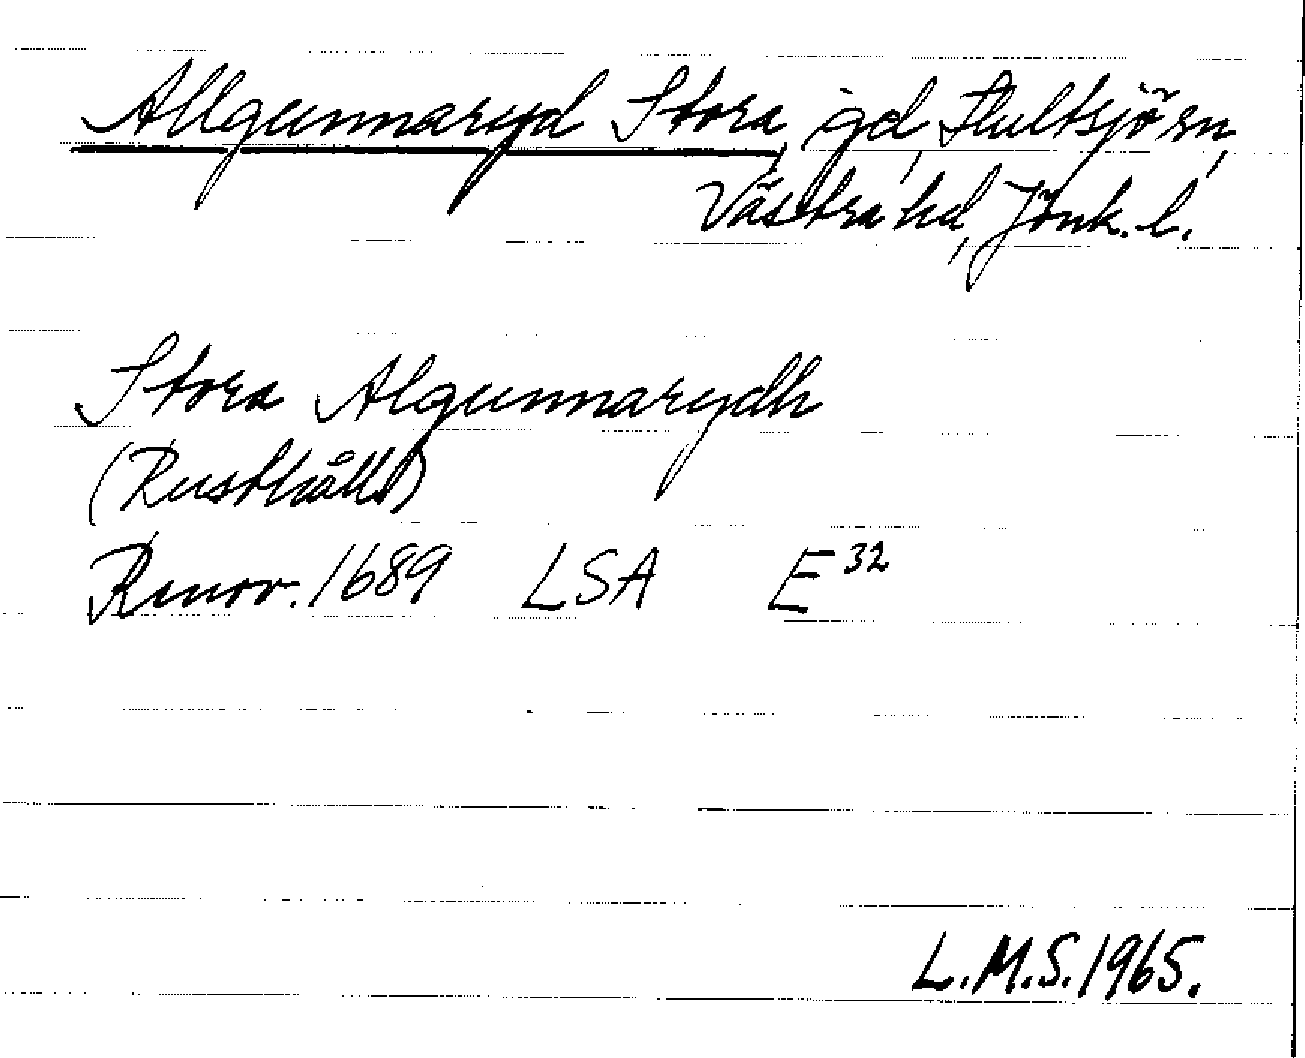 Allgunnaryd Stora, gd, Hultsjö sn,
Västra hd, Jönk. l.
Stora Algunnarydh
(Rusthåll)
Renov. 1689 LSA E 32
L.M.S. 1965.